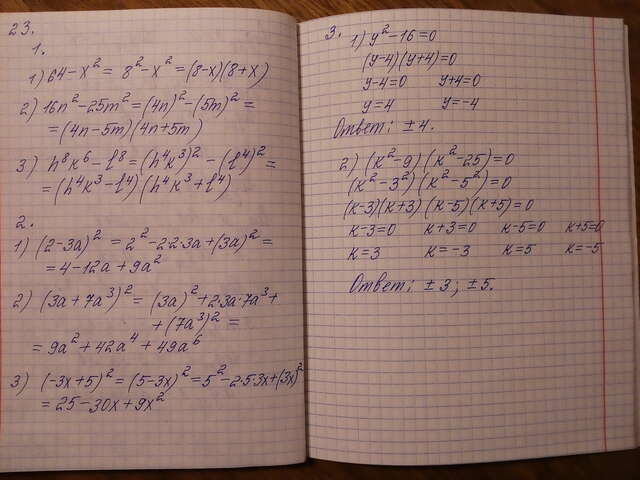 23.
1.
1) 64-x² = 8²-x² = (8-x)(8+x)
2) 16n²-25m² = (4n)²-(5m)² =
= (4n-5m)(4n+5m)
3) h⁸k⁶ - l⁸ = (h⁴k³)² - (l⁴)² =
= (h⁴k³-l⁴)(h⁴k³+l⁴)
2.
1) (2-3a)² = 2²-2·2·3a+(3a)² =
= 4-12a+9a²
2) (3a+7a³)² = (3a)²+2·3a·7a³+
+(7a³)² =
= 9a²+42a⁴+49a⁶
3) (-3x+5)² = (5-3x)² = 5²-2·5·3x+(3x)²
= 25-30x+9x²
3.
1) y²-16=0
(y-4)(y+4)=0
y-4=0 y+4=0
y=4 y=-4
Ответ: ±4.
2) (k²-9)(k²-25)=0
(k²-3²)(k²-5²)=0
(k-3)(k+3)(k-5)(k+5)=0
k-3=0 k+3=0 k-5=0 k+5=0
k=3 k=-3 k=5 k=-5
Ответ: ±3; ±5.